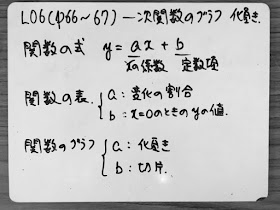 L06(p66~67) 一次関数のグラフ 傾き.
関数の式 y=ax+b
xの係数 定数項
関数の表. a:変化の割合
b:x=0のときのyの値.
関数のグラフ a:傾き
b:切片.